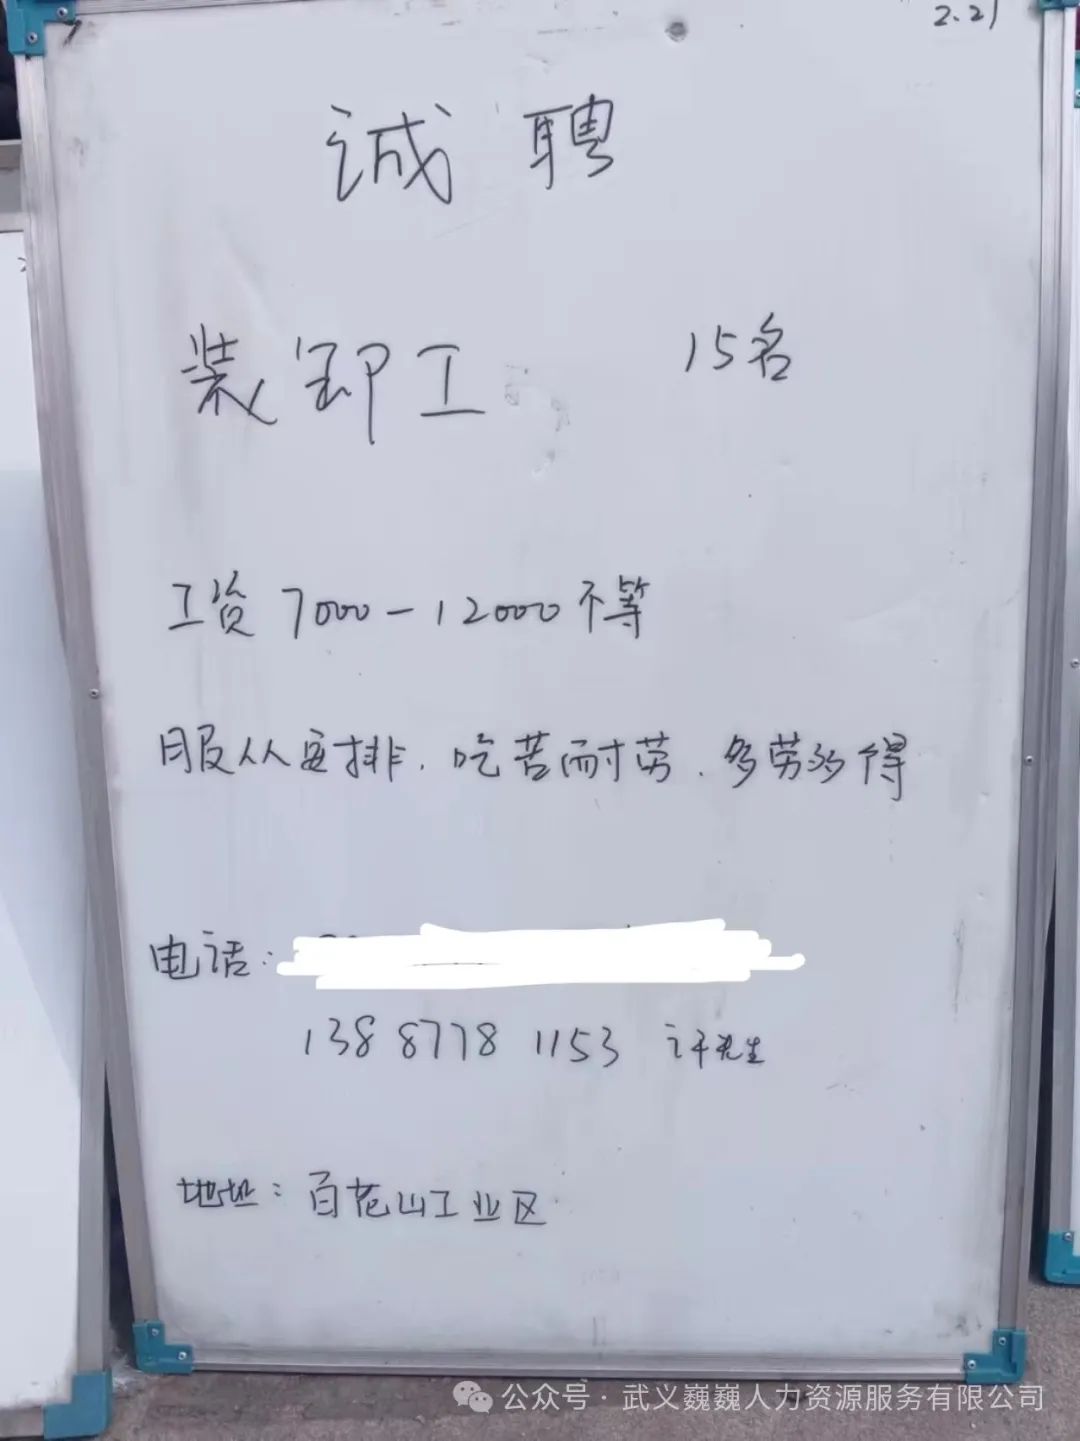 2.21
诚聘
装卸工 15名
工资 7000-12000不等
服从安排.吃苦而耐劳.多劳多得
电话:
138 8778 1153 许先生
地址:百花山工业区
公众号·武义巍巍人力资源服务有限公司